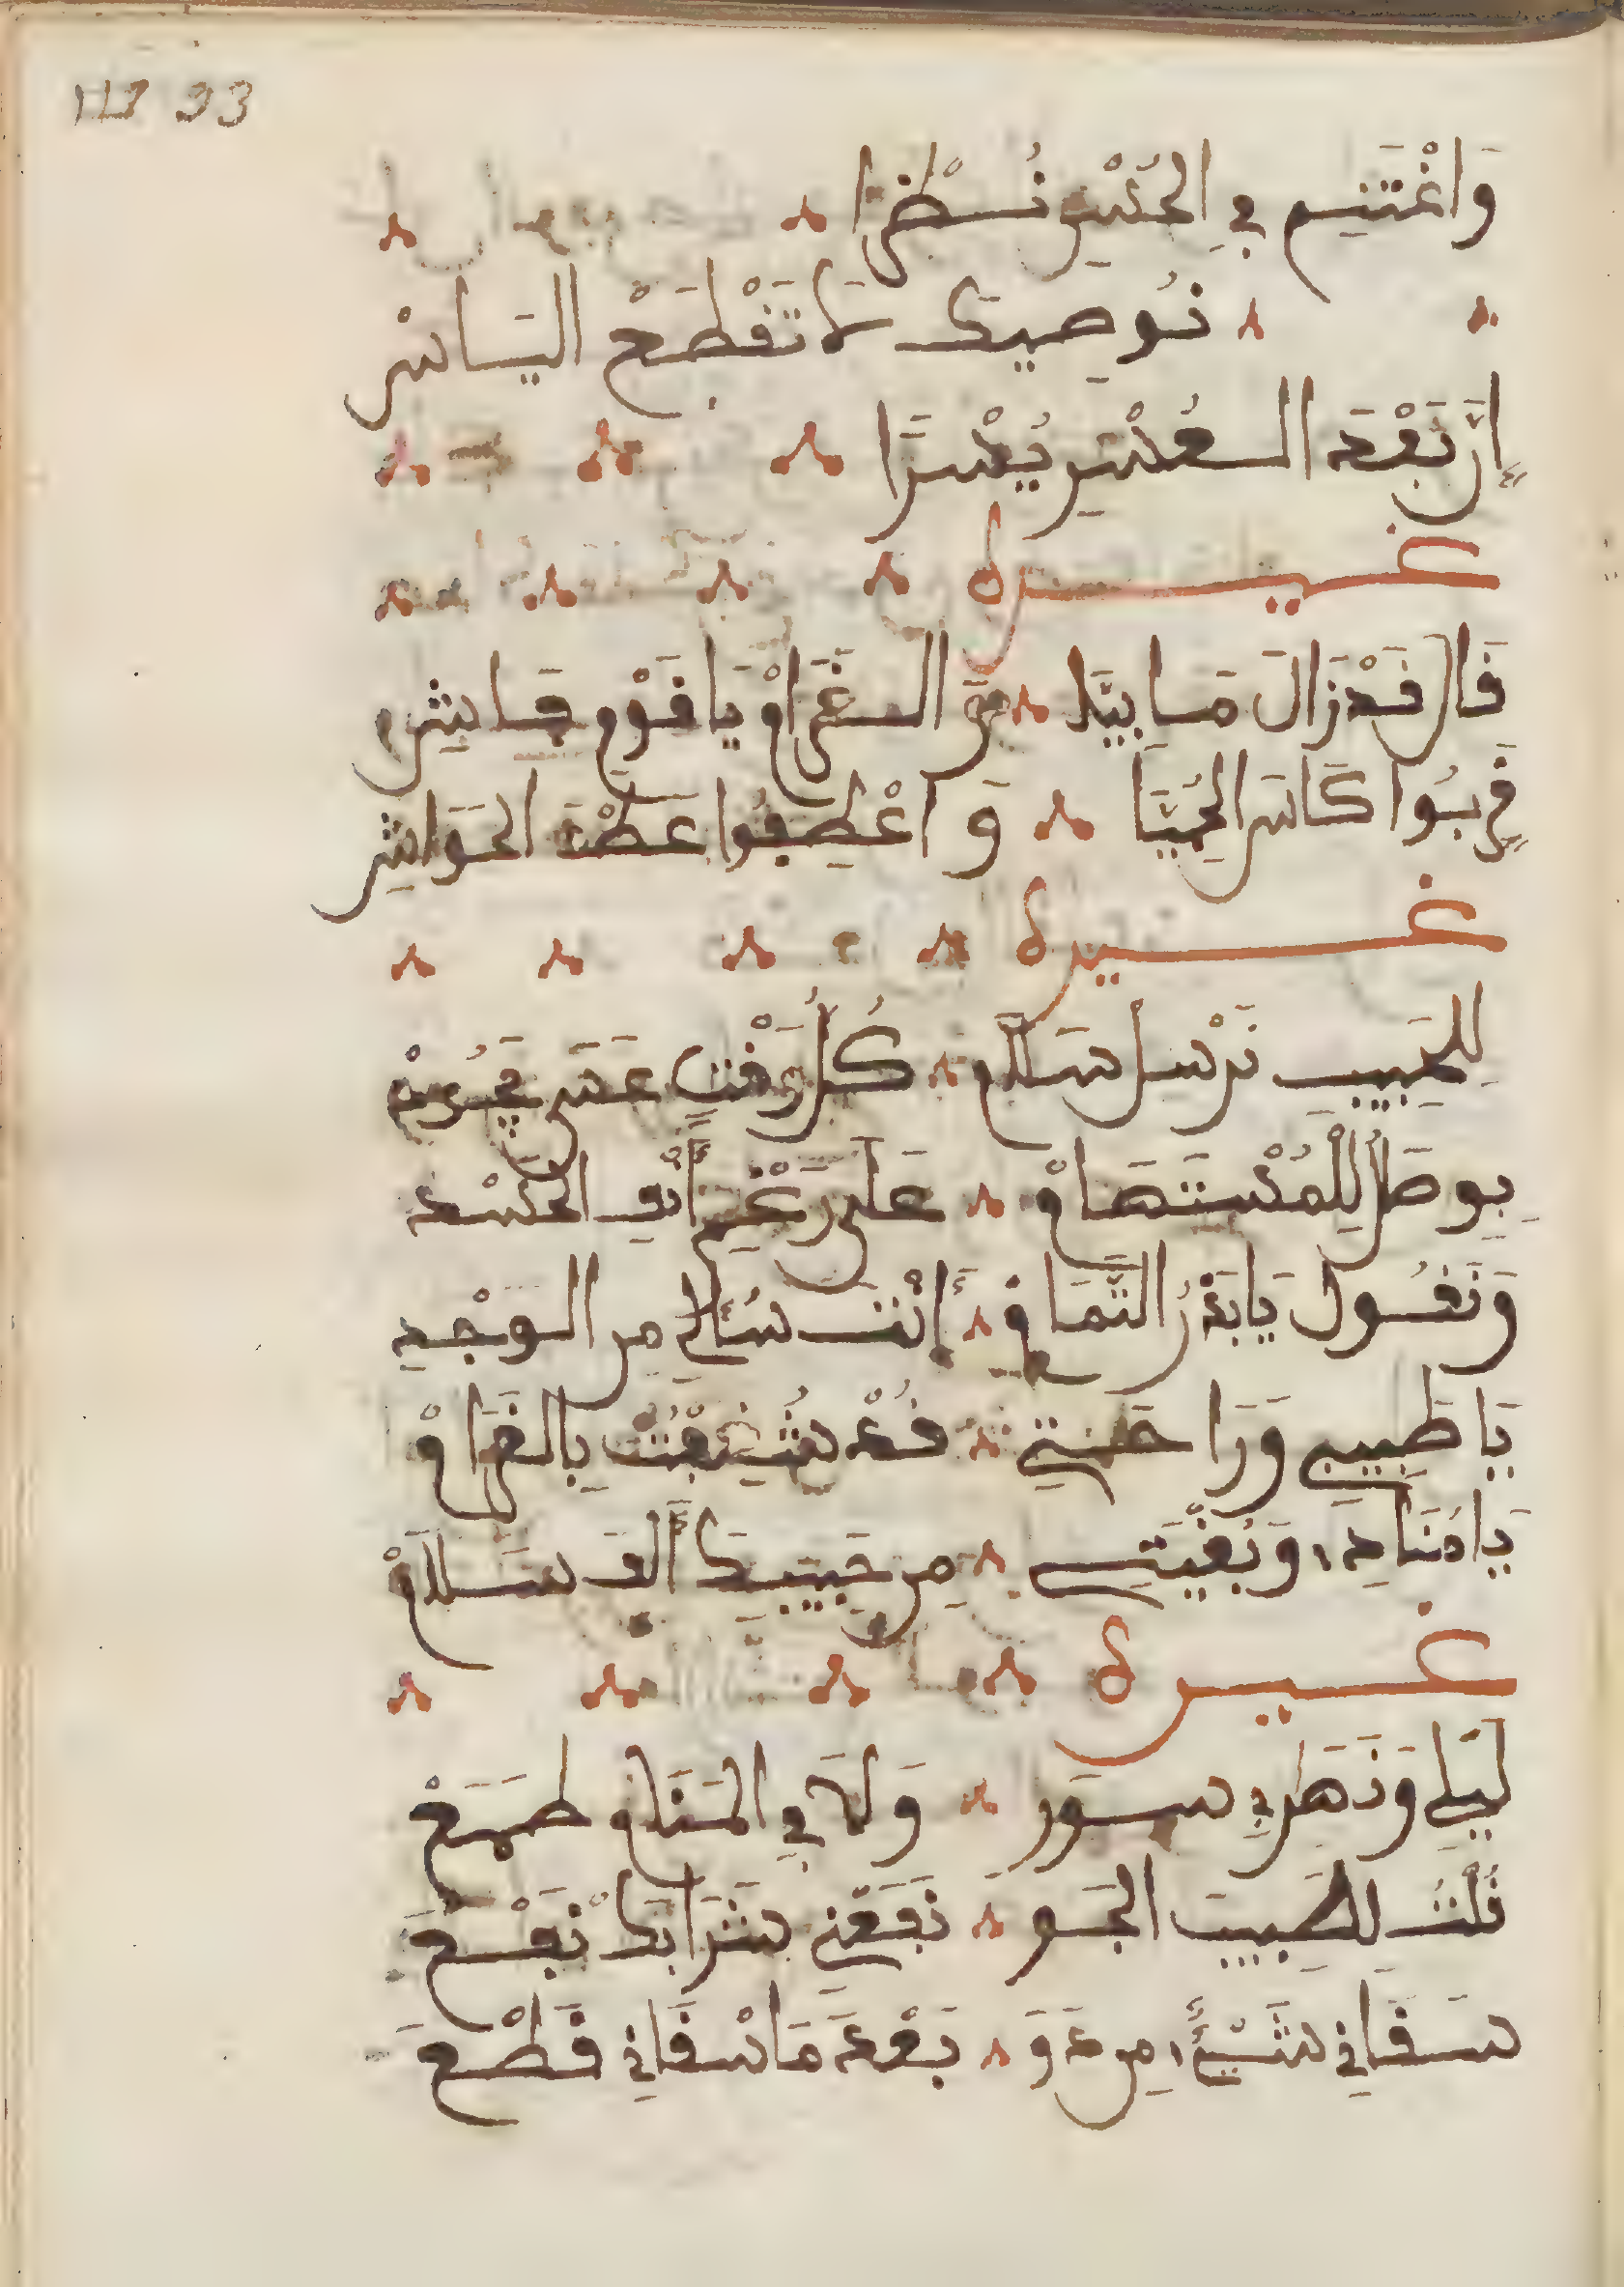 117 33
وَاغْتَنِم فِي الحُسْنِ نُسْظرا
نُوصِيكَ لَا تَقْطَعْ اليَاسْ
إِنَّ بَعْدَ الْعُسْرِ يُسْرًا
غيره
قَال قَدْ زَالَ مَا بِيَّا مِنَ الغَرَامْ يَا قَوْم
قَرِّبُوا كَاسَ الحُمَيَّا وَاعْطِفُوا عَطْفَ الحَوَاشِ
غيره
لِلْحَبِيبِ نَرْسِل سَلَام كُلُّ وَقْتٍ عَسَى يَجُودْ
بِوصَلْ لِلْمُسْتَهَامْ عَلَى رَغْمِ أَنْفِ الحَسُدْ
وَنَقُول يَا بَدْرُ التَّمَام أَنْتَ سُؤْلِي مِن الوُجُدِ
يَا طَبِيبِي وَرَاحَتِي قَدْ شُغِفْتُ بِالغَرَامْ
يَا مُنَادِي وَبُغْيَتِي مِن حَبِيبِكَ أَلْفَ سَلَامْ
غيره
لَيْلِي وَنَهَارِي سَوَى وَلَا فِي المَنَام طَمَعْ
قُلْتُ لِطَبِيبَ الجَوَى نَفَعْنِي شَرَابَكْ نَفَعْ
سَقَانِي شَيْءٌ مِن دَوَا بَعْدَ مَا سْقَانِي قَطَعْ